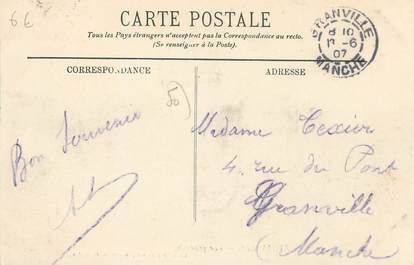 6€
CARTE POSTALE
Tous les Pays étrangers n'acceptent pas la Correspondance au recto.
(Se renseigner à la Poste).
GRANVILLE
8 10
-6
07
MANCHE
CORRESPONDANCE
ADRESSE
50
Bon Souvenir
Madame Texier
4, rue du Pont
Granville
(Manche)